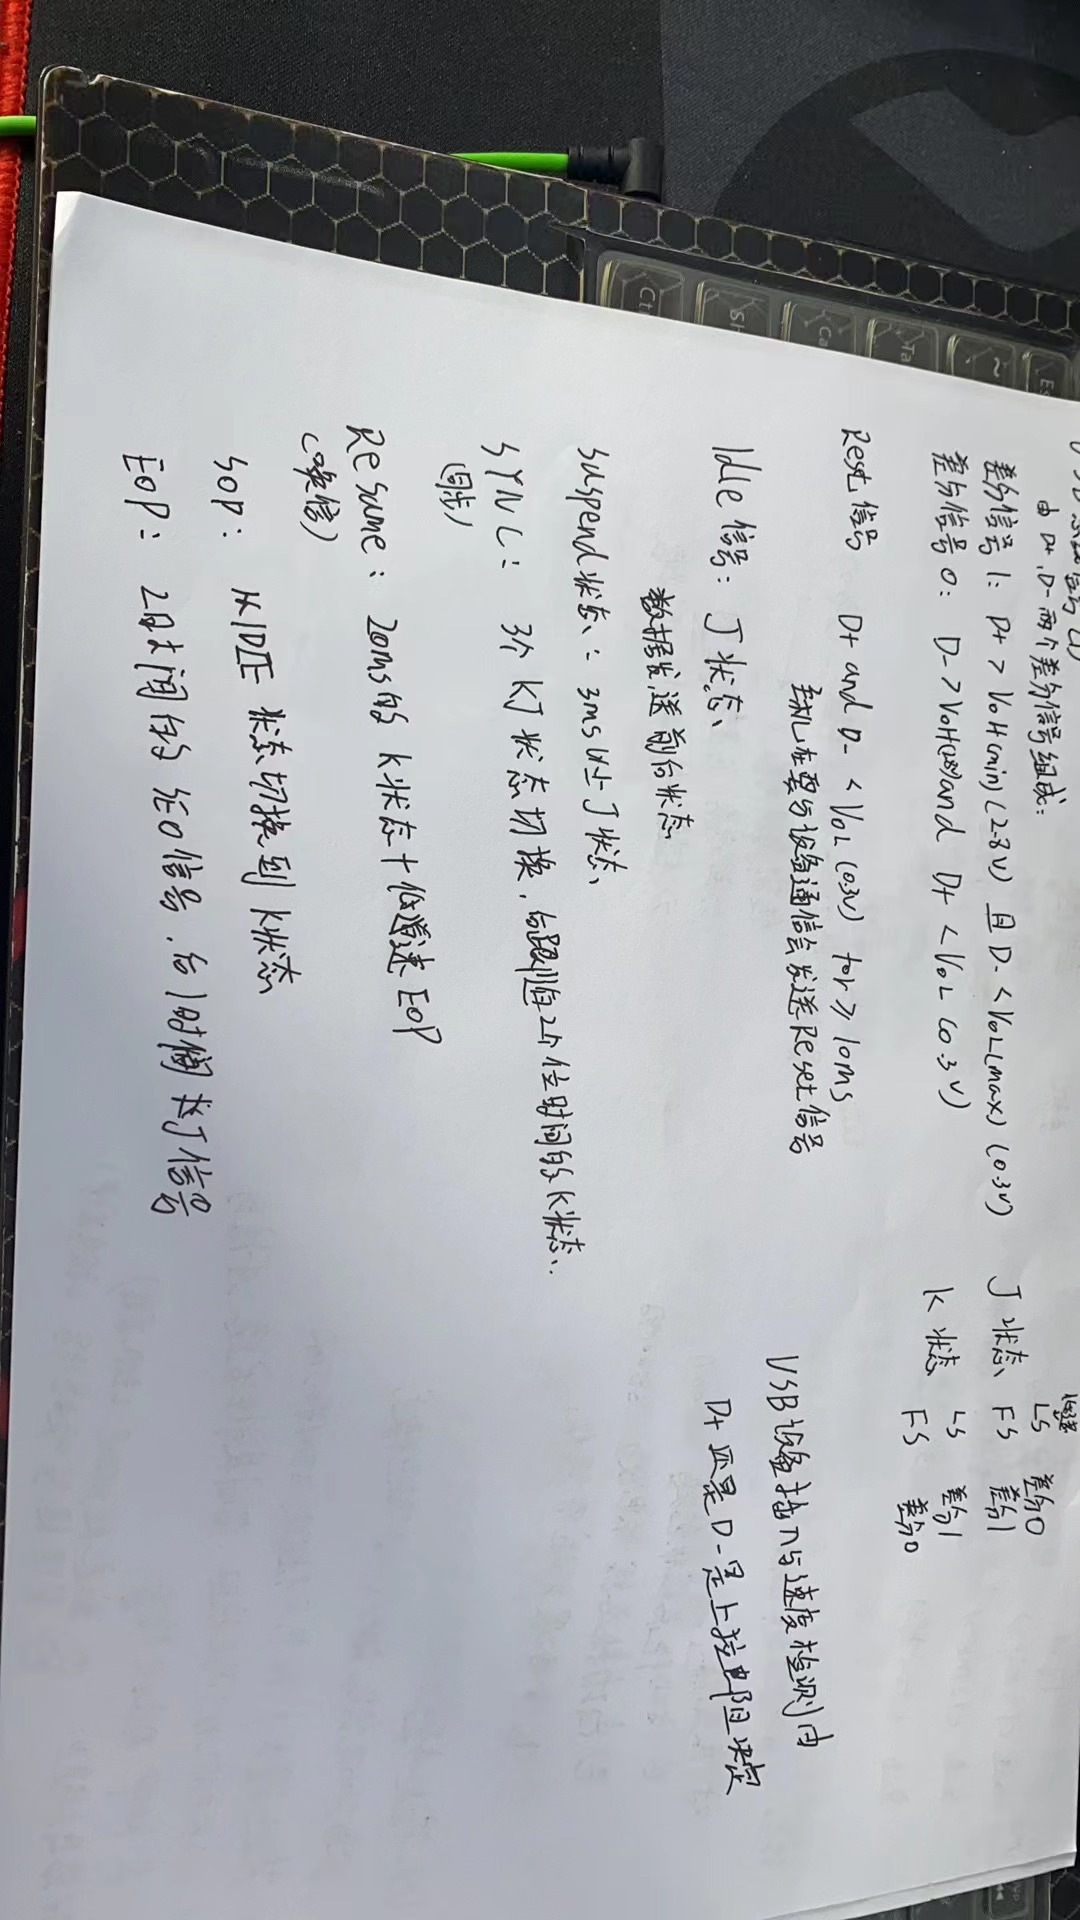 USB 总线信号(1)
由 D+, D- 两个差分信号组成:
差分信号1: D+ > VOH(min) (2.8V) 且 D- < VOL(max) (0.3V)
差分信号0: D- > VOH(2.8V) and D+ < VOL (0.3V)
低速
J 状态 LS 差分0
FS 差分1
K 状态 LS 差分1
FS 差分0
Reset 信号 D+ and D- < VOL (0.3V) for ≥ 10ms
主机在要与设备通信会发送Reset信号
USB设备插入与速度检测由
D+ 还是 D- 是上拉电阻决定
Idle 信号: J 状态
数据发送前后状态
suspend状态: 3ms以上J状态
SYNC: 3个 KJ 状态切换, 后跟随2个位时间的K状态.
(同步)
Resume: 20ms的 K状态+低速 EOP
(唤信)
SOP: 从IDLE 状态切换到 K状态
EOP: 2时间的 SE0信号, 后1时间 J信号